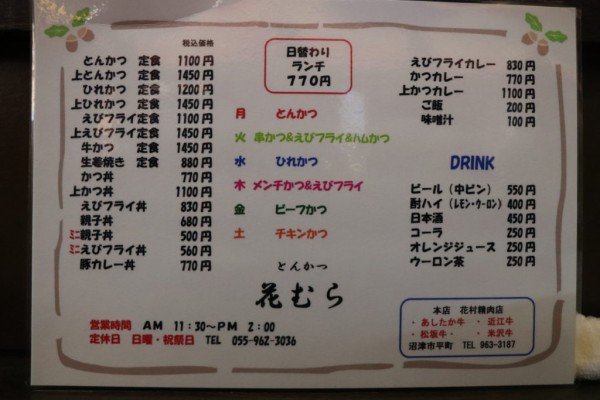 税込価格
とんかつ 定食 1100円
上とんかつ 定食 1450円
ひれかつ 定食 1200円
上ひれかつ 定食 1450円
えびフライ定食 1100円
上えびフライ定食 1450円
牛かつ 定食 1450円
生姜焼き 定食 880円
かつ丼 770円
上かつ丼 1100円
えびフライ丼 830円
親子丼 680円
ミニ親子丼 500円
ミニえびフライ丼 560円
豚カレー丼 770円
日替わり
ランチ
770円
月 とんかつ
火 串かつ&えびフライ&ハムかつ
水 ひれかつ
木 メンチかつ&えびフライ
金 ビーフかつ
土 チキンかつ
とんかつ
花むら
えびフライカレー 830円
かつカレー 770円
上かつカレー 1100円
ご飯 200円
味噌汁 100円
DRINK
ビール (中ビン) 550円
酎ハイ (レモン・ウーロン) 400円
日本酒 450円
コーラ 250円
オレンジジュース 250円
ウーロン茶 250円
営業時間 AM 11:30～PM 2:00
定休日 日曜・祝祭日 TEL 055-962-3036
本店 花村精肉店
・あしたか牛 ・近江牛
・松坂牛・ ・米沢牛
沼津市平町 TEL 963-3187